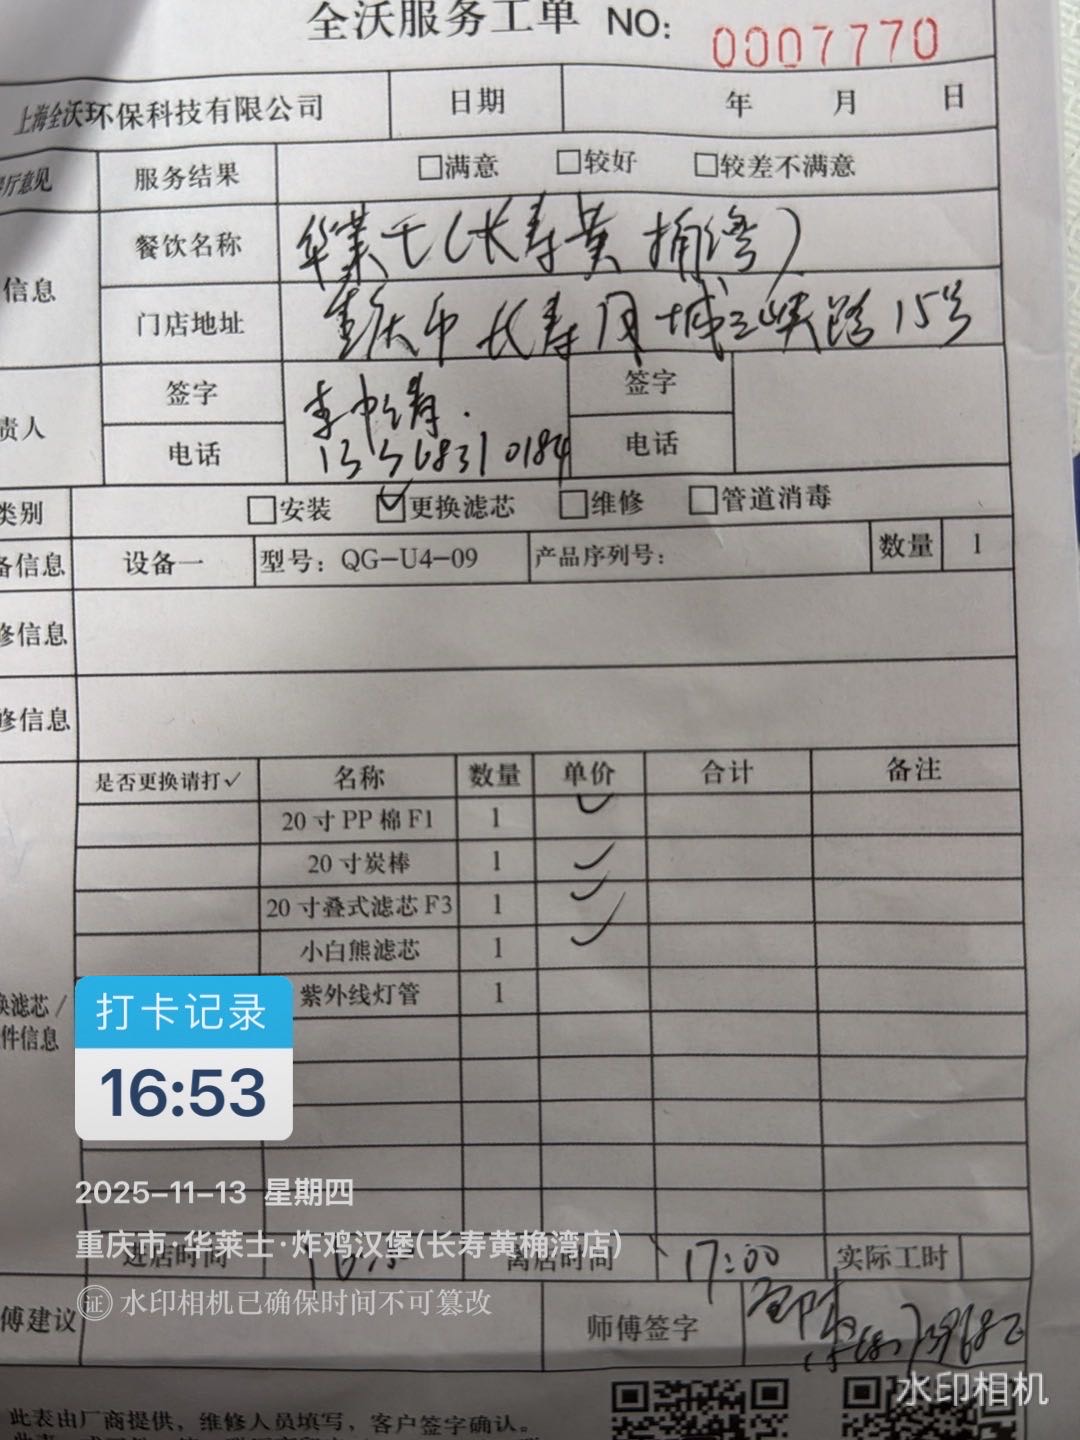 全沃服务工单 NO: 0007770
上海全沃环保科技有限公司 日期 年 月 日
厅意见 服务结果 □满意 □较好 □较差不满意
信息 餐饮名称 华莱士(长寿黄桷湾)
门店地址 重庆市长寿 城三峡路15号
责人 签字 李 签字
电话 电话
类别 □安装 ☑更换滤芯 □维修 □管道消毒
备信息 设备一 型号: QG-U4-09 产品序列号: 数量 1
修信息
修信息
是否更换请打✓ 名称 数量 单价 合计 备注
20寸PP棉F1 1 ✓
20寸炭棒 1 ✓
20寸叠式滤芯F3 1 ✓
小白熊滤芯 1 ✓
换滤芯/件信息 紫外线灯管 1
打卡记录
16:53
2025-11-13 星期四
重庆市·华莱士·炸鸡汉堡(长寿黄桷湾店)
进店时间 离店时间 17:00 实际工时
证 水印相机已确保时间不可篡改
傅建议 师傅签字
水印相机
此表由厂商提供，维修人员填写，客户签字确认。